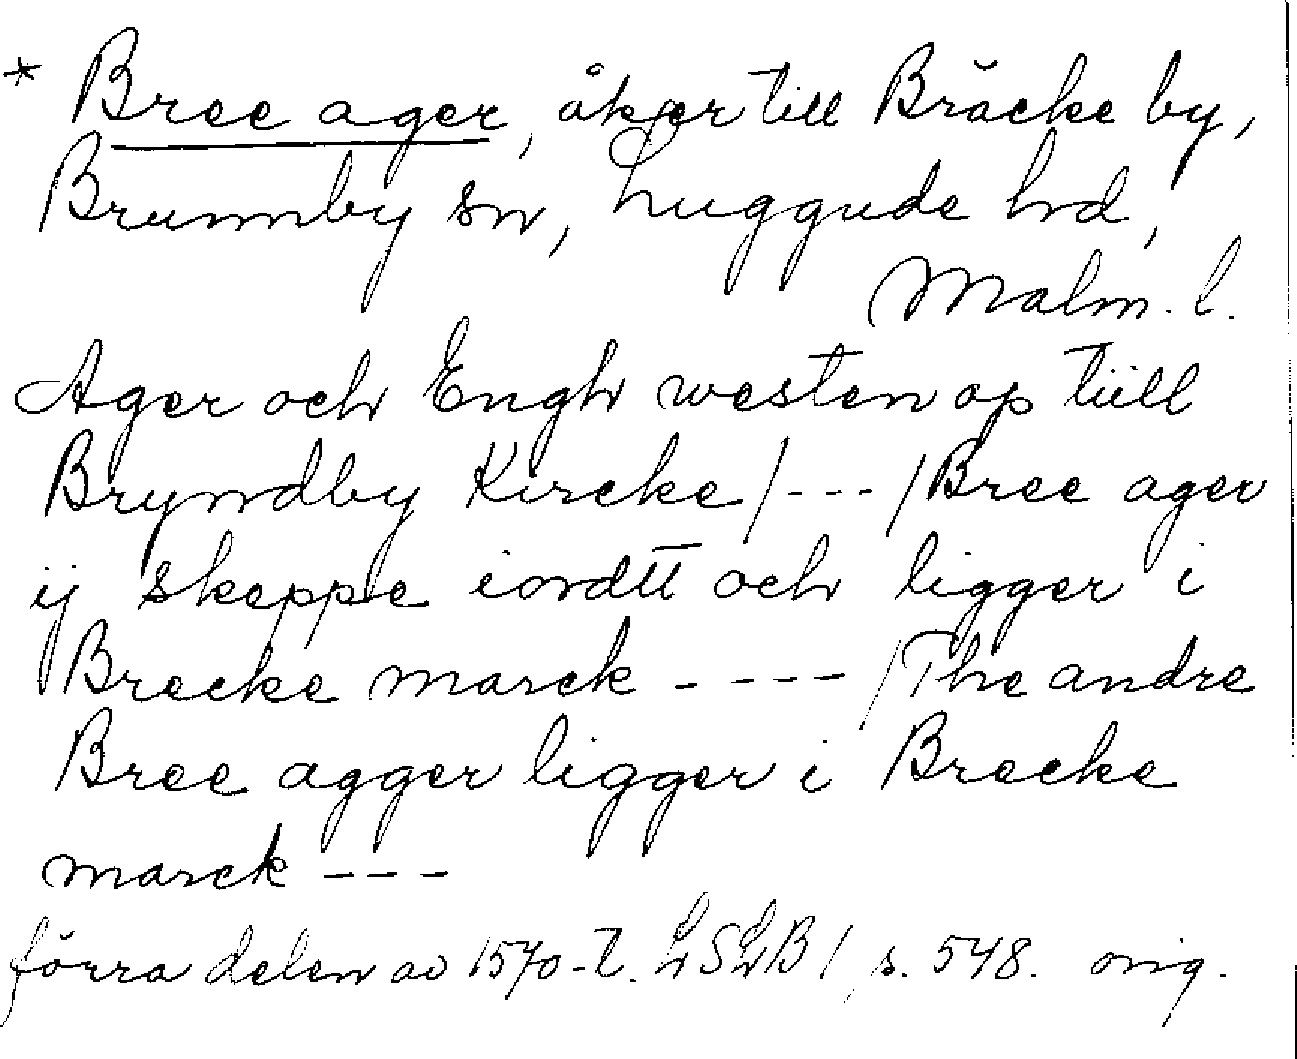 * Bree ager, åker till Bräcke by,
Brunnby sn, Luggude hd,
Malm. l.
Ager och Engh westen op tiill
Bryndby Kircke /---/ Bree ager
ij skeppe iordtt och ligger i
Brecke marck ---- / The andre
Bree agger ligger i Brecke
marck ---
förra delen av 1570-t. LSLB 1, s. 548. orig.